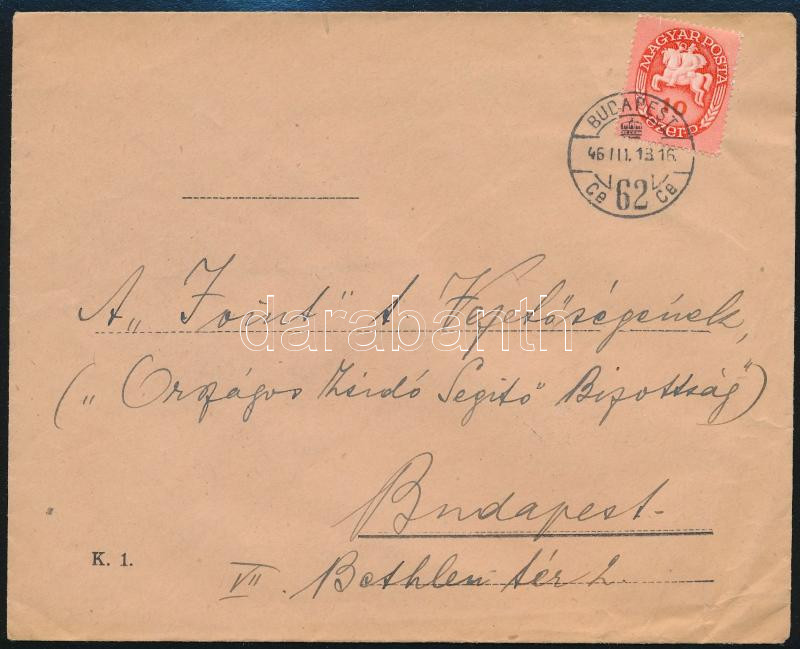 MAGYAR POSTA
10
ezer P
BUDAPEST
46 III. 13.16.
Ce 62 Ce
A „Joint" t. Vezetőségének,
(„Országos Zsidó Segitő Bizottság")
darabanth
Budapest.
K. 1.
VII. Bethlen tér 2.